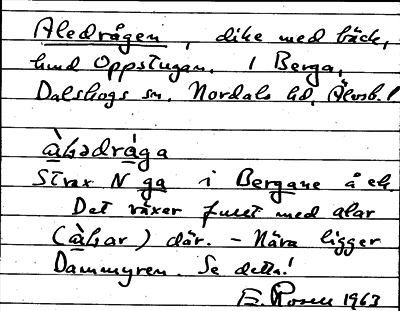 Aledrågen, dike med bäck,
hmd Oppstugan. i Berga,
Dalskogs sn. Nordals hd, Älvsb. l
àlədrága
Strax N ga i Bergane å ek.
Det växer fullt med alar
(àlsar) där. - Nära ligger
Dammyren. Se detta!
E. Rosen 1963